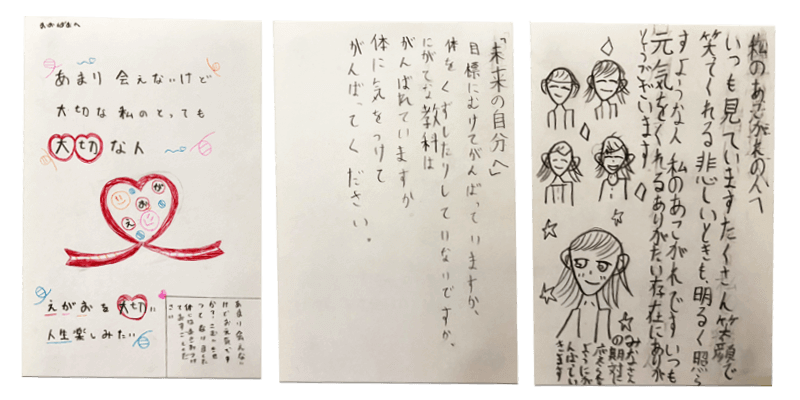 おおばぁへ
あまり 会えないけど
大切な 私のとっても
大切な人
え
が
お
えがおを大切に
人生楽しみたい
あまり会えない
けどお元気です
「未来の自分へ」
目標にむけてがんばっていますか、
体をくずしたりしていないですか、
にがてな教科は
がんばれていますか
体に気をつけて
がんばってください。
私のあこがれの人へ
いつも見ていますたくさん笑顔で
笑てくれる 悲しいときも、明るく照ら
すような人 私のあこがれです いつも
元気をくれるありがたい存在にありが
とうございます
みなさん
の期待に
応えら
ようにが
んばってい
きます